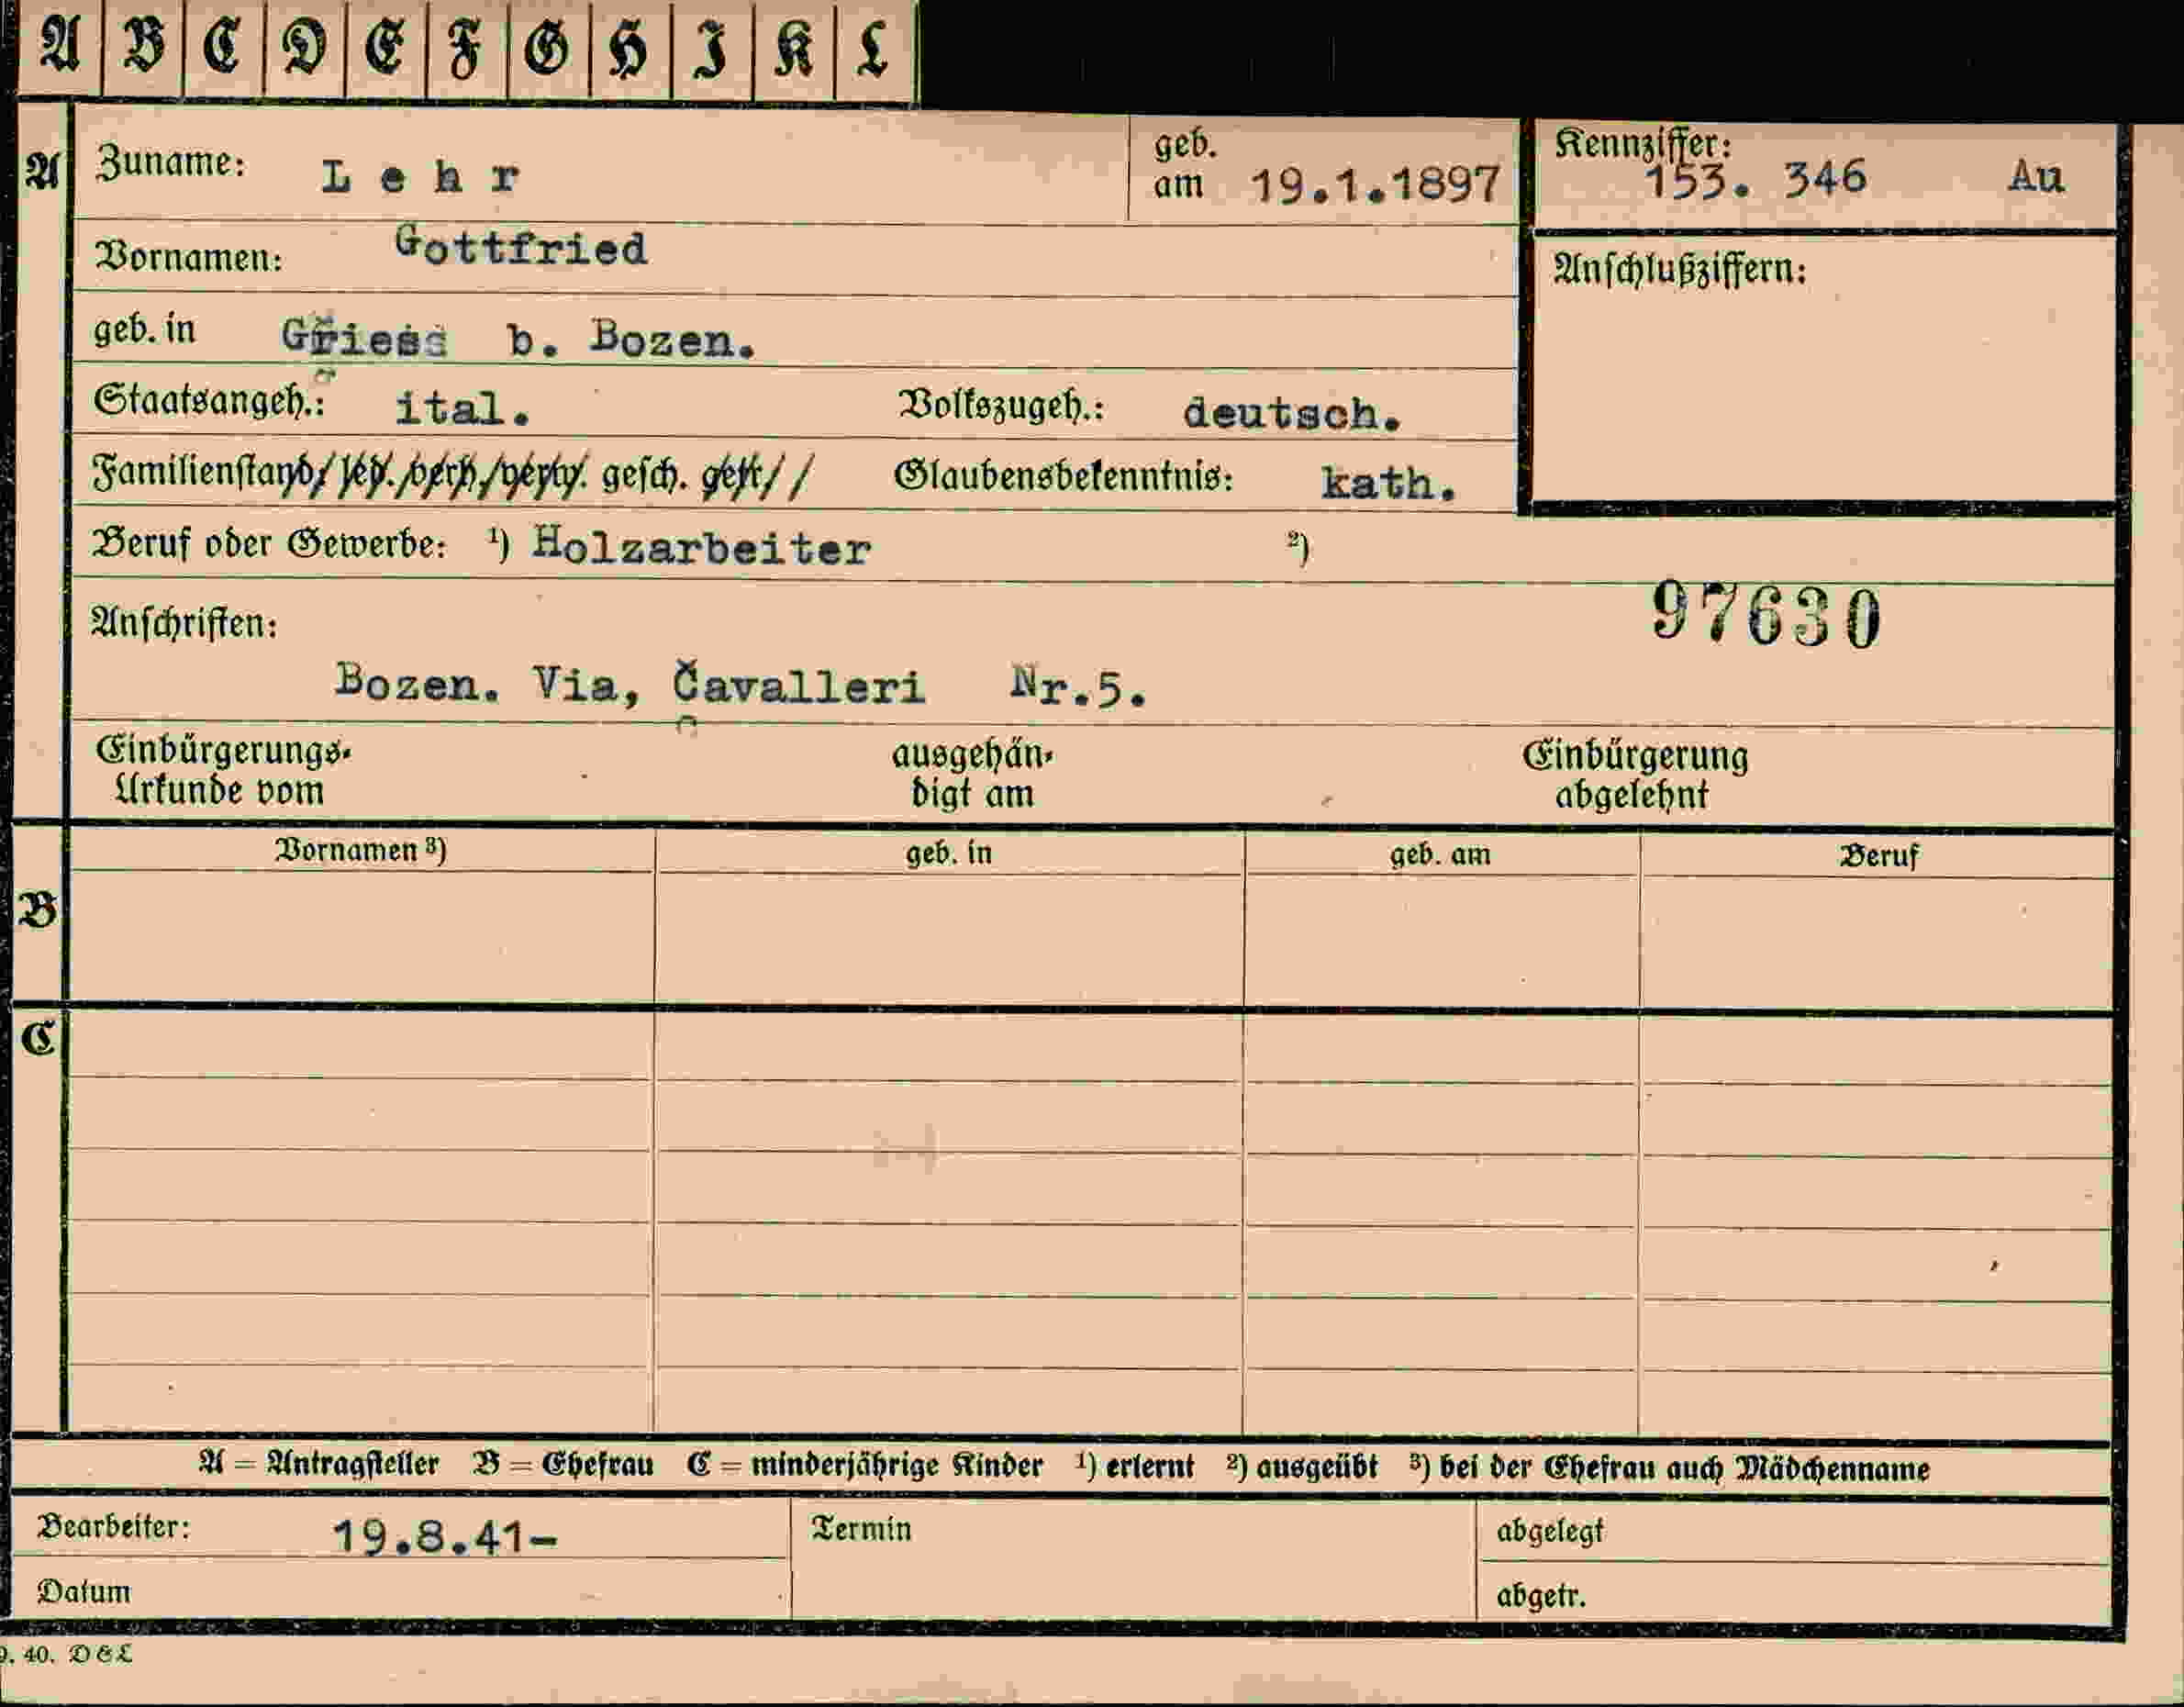 A B C D E F G H I K L
A Zuname: Lehr geb. am 19.1.1897 Kennziffer: 153. 346 Au
Vornamen: Gottfried
Anschlußziffern:
geb. in Griess b. Bozen.
Staatsangeh.: ital. Volkszugeh.: deutsch.
Familienstand/ led. verh. verw. gesch. getr. Glaubensbekenntnis: kath.
Beruf oder Gewerbe: ¹) Holzarbeiter ²)
97630
Anschriften:
Bozen. Via, Cavalleri Nr.5.
Einbürgerungs- ausgehän- Einbürgerung
Urkunde vom digt am abgelehnt
Vornamen ³) geb. in geb. am Beruf
B
C
A = Antragsteller B = Ehefrau C = minderjährige Kinder ¹) erlernt ²) ausgeübt ³) bei der Ehefrau auch Mädchenname
Bearbeiter: 19.8.41- Termin abgelegt
Datum abgetr.
9. 40. D & L